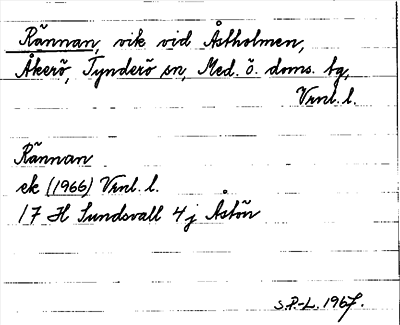 Rännan, vik vid Åstholmen,
Åkerö, Tynderö sn, Med. ö. doms. tg,
Vrnl. l.
Rännan
ek (1966) Vrnl. l.
17 H Sundsvall 4 j Åstön
S.P.-L. 1967.